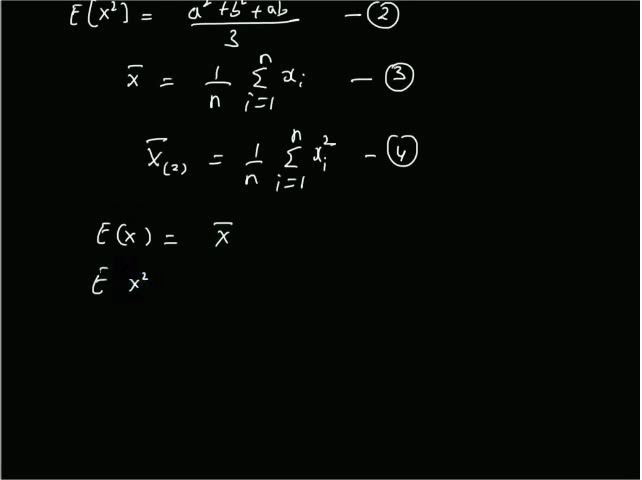 E[x²] = a² + b² + ab / 3 — ②
x̄ = 1/n Σ_{i=1}^{n} x_i — ③
x̄₍₂₎ = 1/n Σ_{i=1}^{n} x_i² — ④
E(x) = x̄
E x²